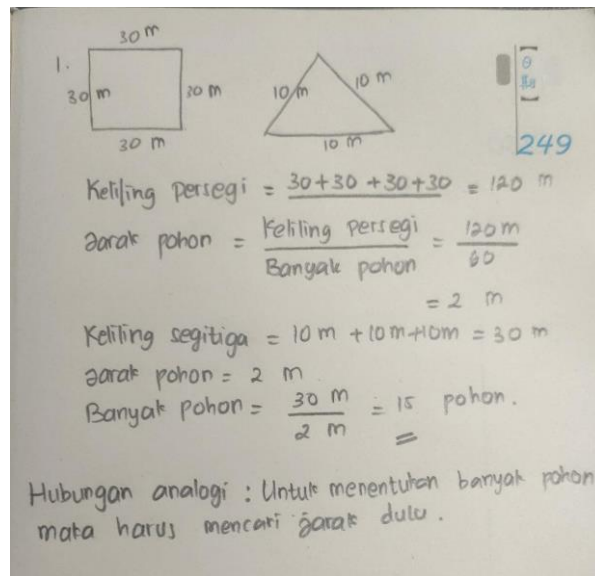 30 m
1.
30 m
20 m
30 m
10 m
10 m
10 m
249
Keliling persegi = 30+30+30+30 = 120 m
Jarak pohon = Keliling persegi / Banyak pohon = 120 m / 60
= 2 m
Keliling segitiga = 10 m + 10 m + 10m = 30 m
Jarak pohon = 2 m
Banyak pohon = 30 m / 2 m = 15 pohon.
Hubungan analogi : Untuk menentukan banyak pohon
maka harus mencari jarak dulu.